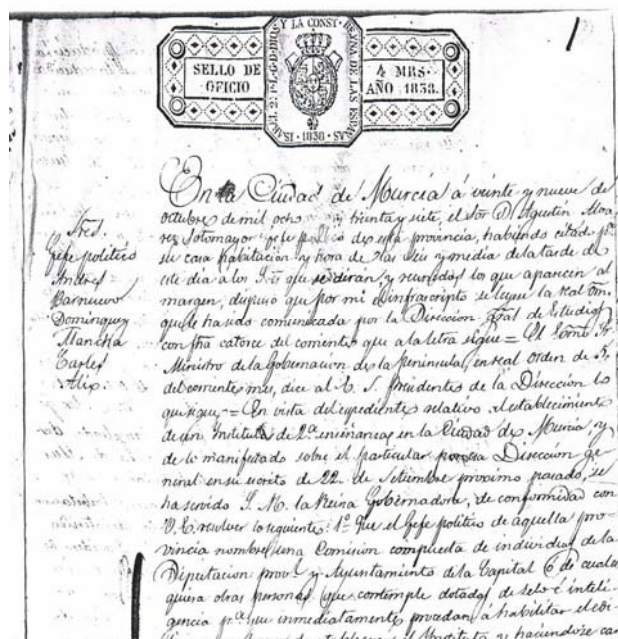 ISABEL 2ª P. L. G. D. DIOS Y LA CONST. REINA DE LAS ESPAÑAS · 1838 ·
SELLO DE OFICIO
4 MRS. AÑO 1838.
1
Sres.
Gefe politico
Andres
Barnuevo
Dominguez
Mancha
Carles
Alix
En la Ciudad de Murcia á veinte y nueve de
octubre de mil ocho y treinta y siete, el Sor D. Agustin Alva
rez Sotomayor gefe politico de esta provincia, habiendo citado pa
su casa habitacion y hora de las seis y media de la tarde de
este dia a los Sres que se dirán y reunidos los que aparecen al
margen, dispuso que por mi el infraescripto se leyese la Real Orn.
que le ha sido comunicada por la Direccion gral de Estudios
con fha catorce del corriente que a la letra sigue = El Exmo Sr
Ministro de la Gobernacion de la Peninsula, en real orden de 5,
del corriente mes, dice al E. S. Presidente de la Direccion lo
que sigue = En vista del expediente relativo al establecimiento
de un Instituto de 2ª enseñanza en la Ciudad de Murcia, y
de lo manifestado sobre el particular por esa Direccion ge
neral en su escrito de 22 de Setiembre proximo pasado, se
ha servido S. M. la Reina Gobernadora, de conformidad con
V. E. resolver lo siguiente: 1º Que el Gefe politico de aquella pro-
vincia nombre una Comision compuesta de individuos de la
Diputacion provl. y Ayuntamiento de la Capital ó de cuales
quiera otras personas que contemple dotadas de celo é inteli-
gencia pª que inmediatamente procedan a habilitar el edi-
el Instituto y haciendose car